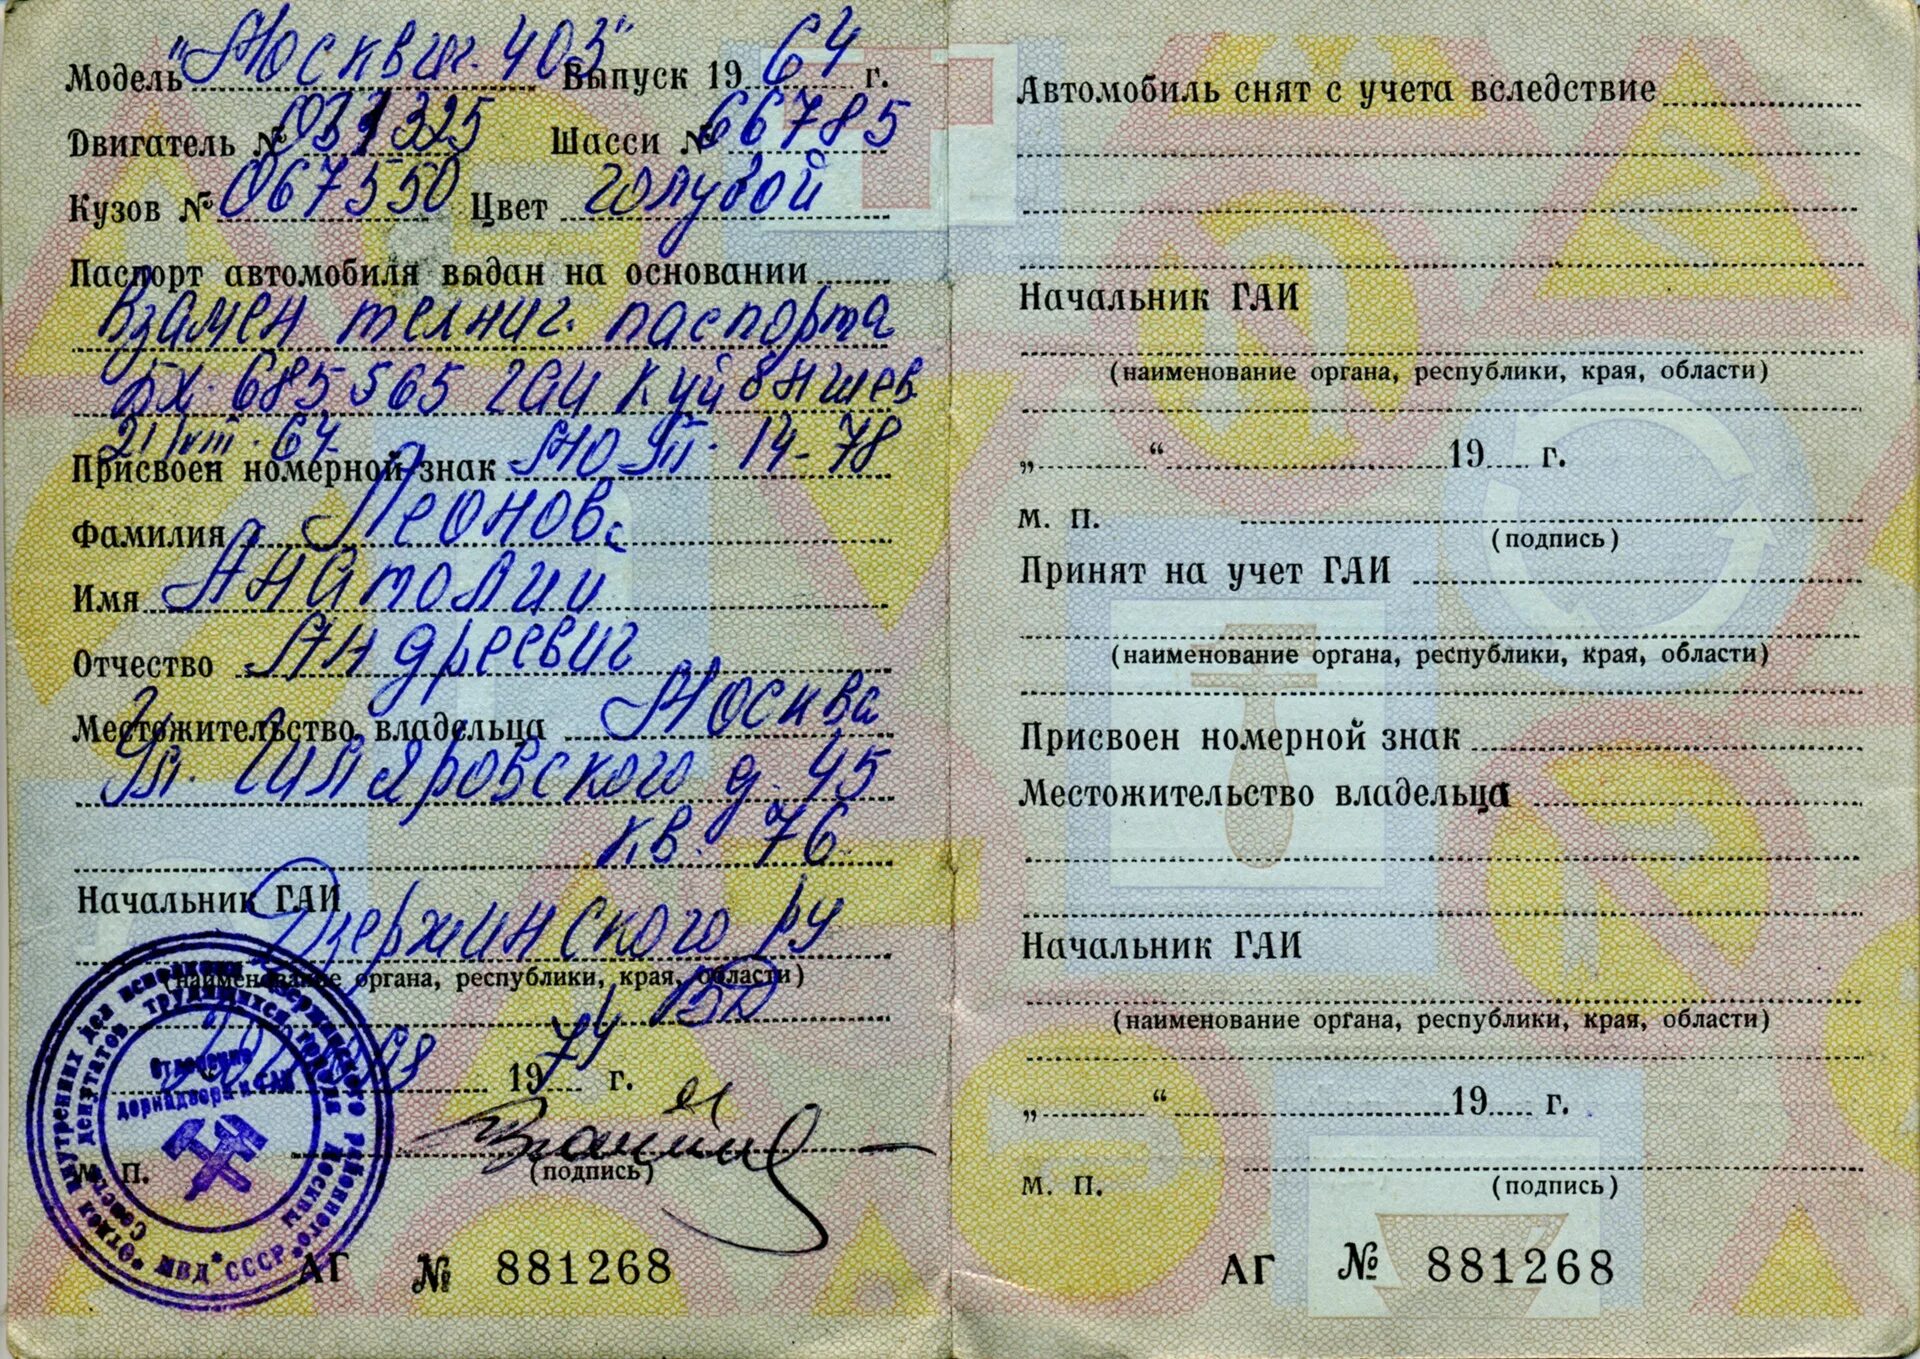 Модель "Москвич. 403" Выпуск 19 64 г.
Двигатель № 031325 Шасси № 66785
Кузов № 067550 Цвет голубой
Паспорт автомобиля выдан на основании
Взамен технич. паспорта
БХ. 685565 ГАИ Куйбышев.
21/VIII·67.
Присвоен номерной знак 14-78
Фамилия Леонов
Имя Анатолии
Отчество Андреевич
Местожительство владельца Москва
Ул. Гиляровского д. 45
кв. 76
Начальник ГАИ
Дзержинского РУ
(наименование органа, республики, края, области)
ВД
19 74 г.
М. П.
(подпись)
Отдел внутренних дел исполкома Дзержинского районного
Совета депутатов трудящихся города Москвы
МВД СССР
Отделение
дорнадзора и ГАИ
АГ № 881268
Автомобиль снят с учета вследствие
Начальник ГАИ
(наименование органа, республики, края, области)
„ “ 19 г.
М. П.
(подпись)
Принят на учет ГАИ
(наименование органа, республики, края, области)
Присвоен номерной знак
Местожительство владельца
Начальник ГАИ
(наименование органа, республики, края, области)
„ “ 19 г.
М. П.
(подпись)
АГ № 881268